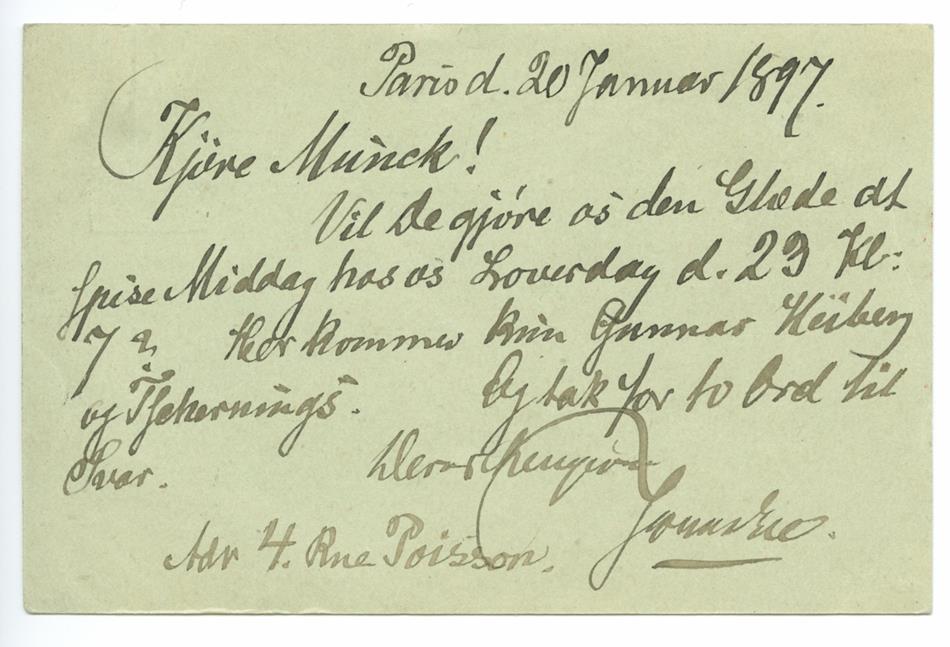 Paris d. 20 Januar 1897.
Kjöre Munck!
Vil De gjöre os den Glæde at
spise Middag hos os Loverdag d. 23 Kl:
7? Her kommer kun Gunnar Heiberg
og Tschernings. Og tak for to Ord til
Svar. Deres
Adr 4. Rue Poisson.